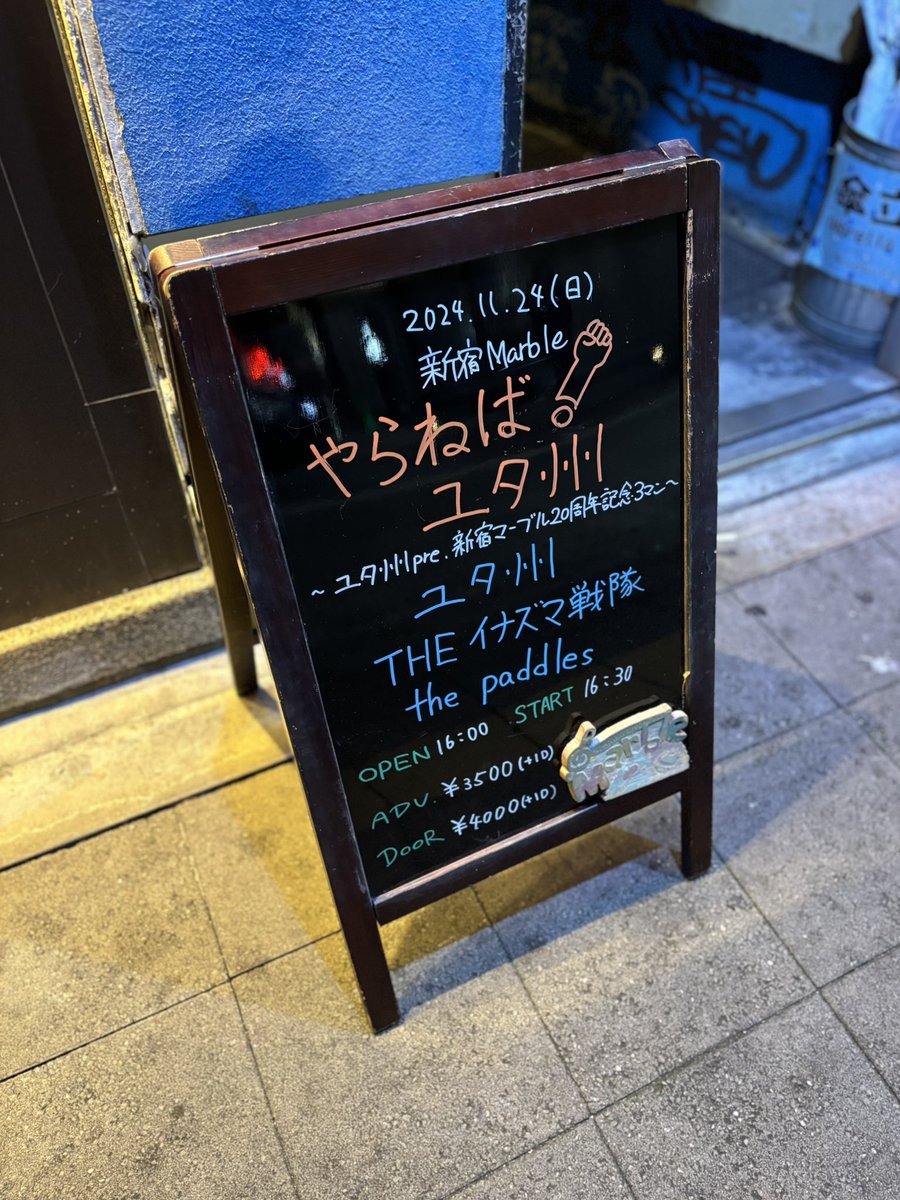 2024.11.24(日)
新宿Marble
やらねば!
ユタ州
~ユタ州pre.新宿マーブル20周年記念3マン~
ユタ州
THE イナズマ戦隊
the paddles
OPEN 16:00 START 16:30
ADV. ¥3500(+1D)
DOOR ¥4000(+1D)
MarbLe
傘立